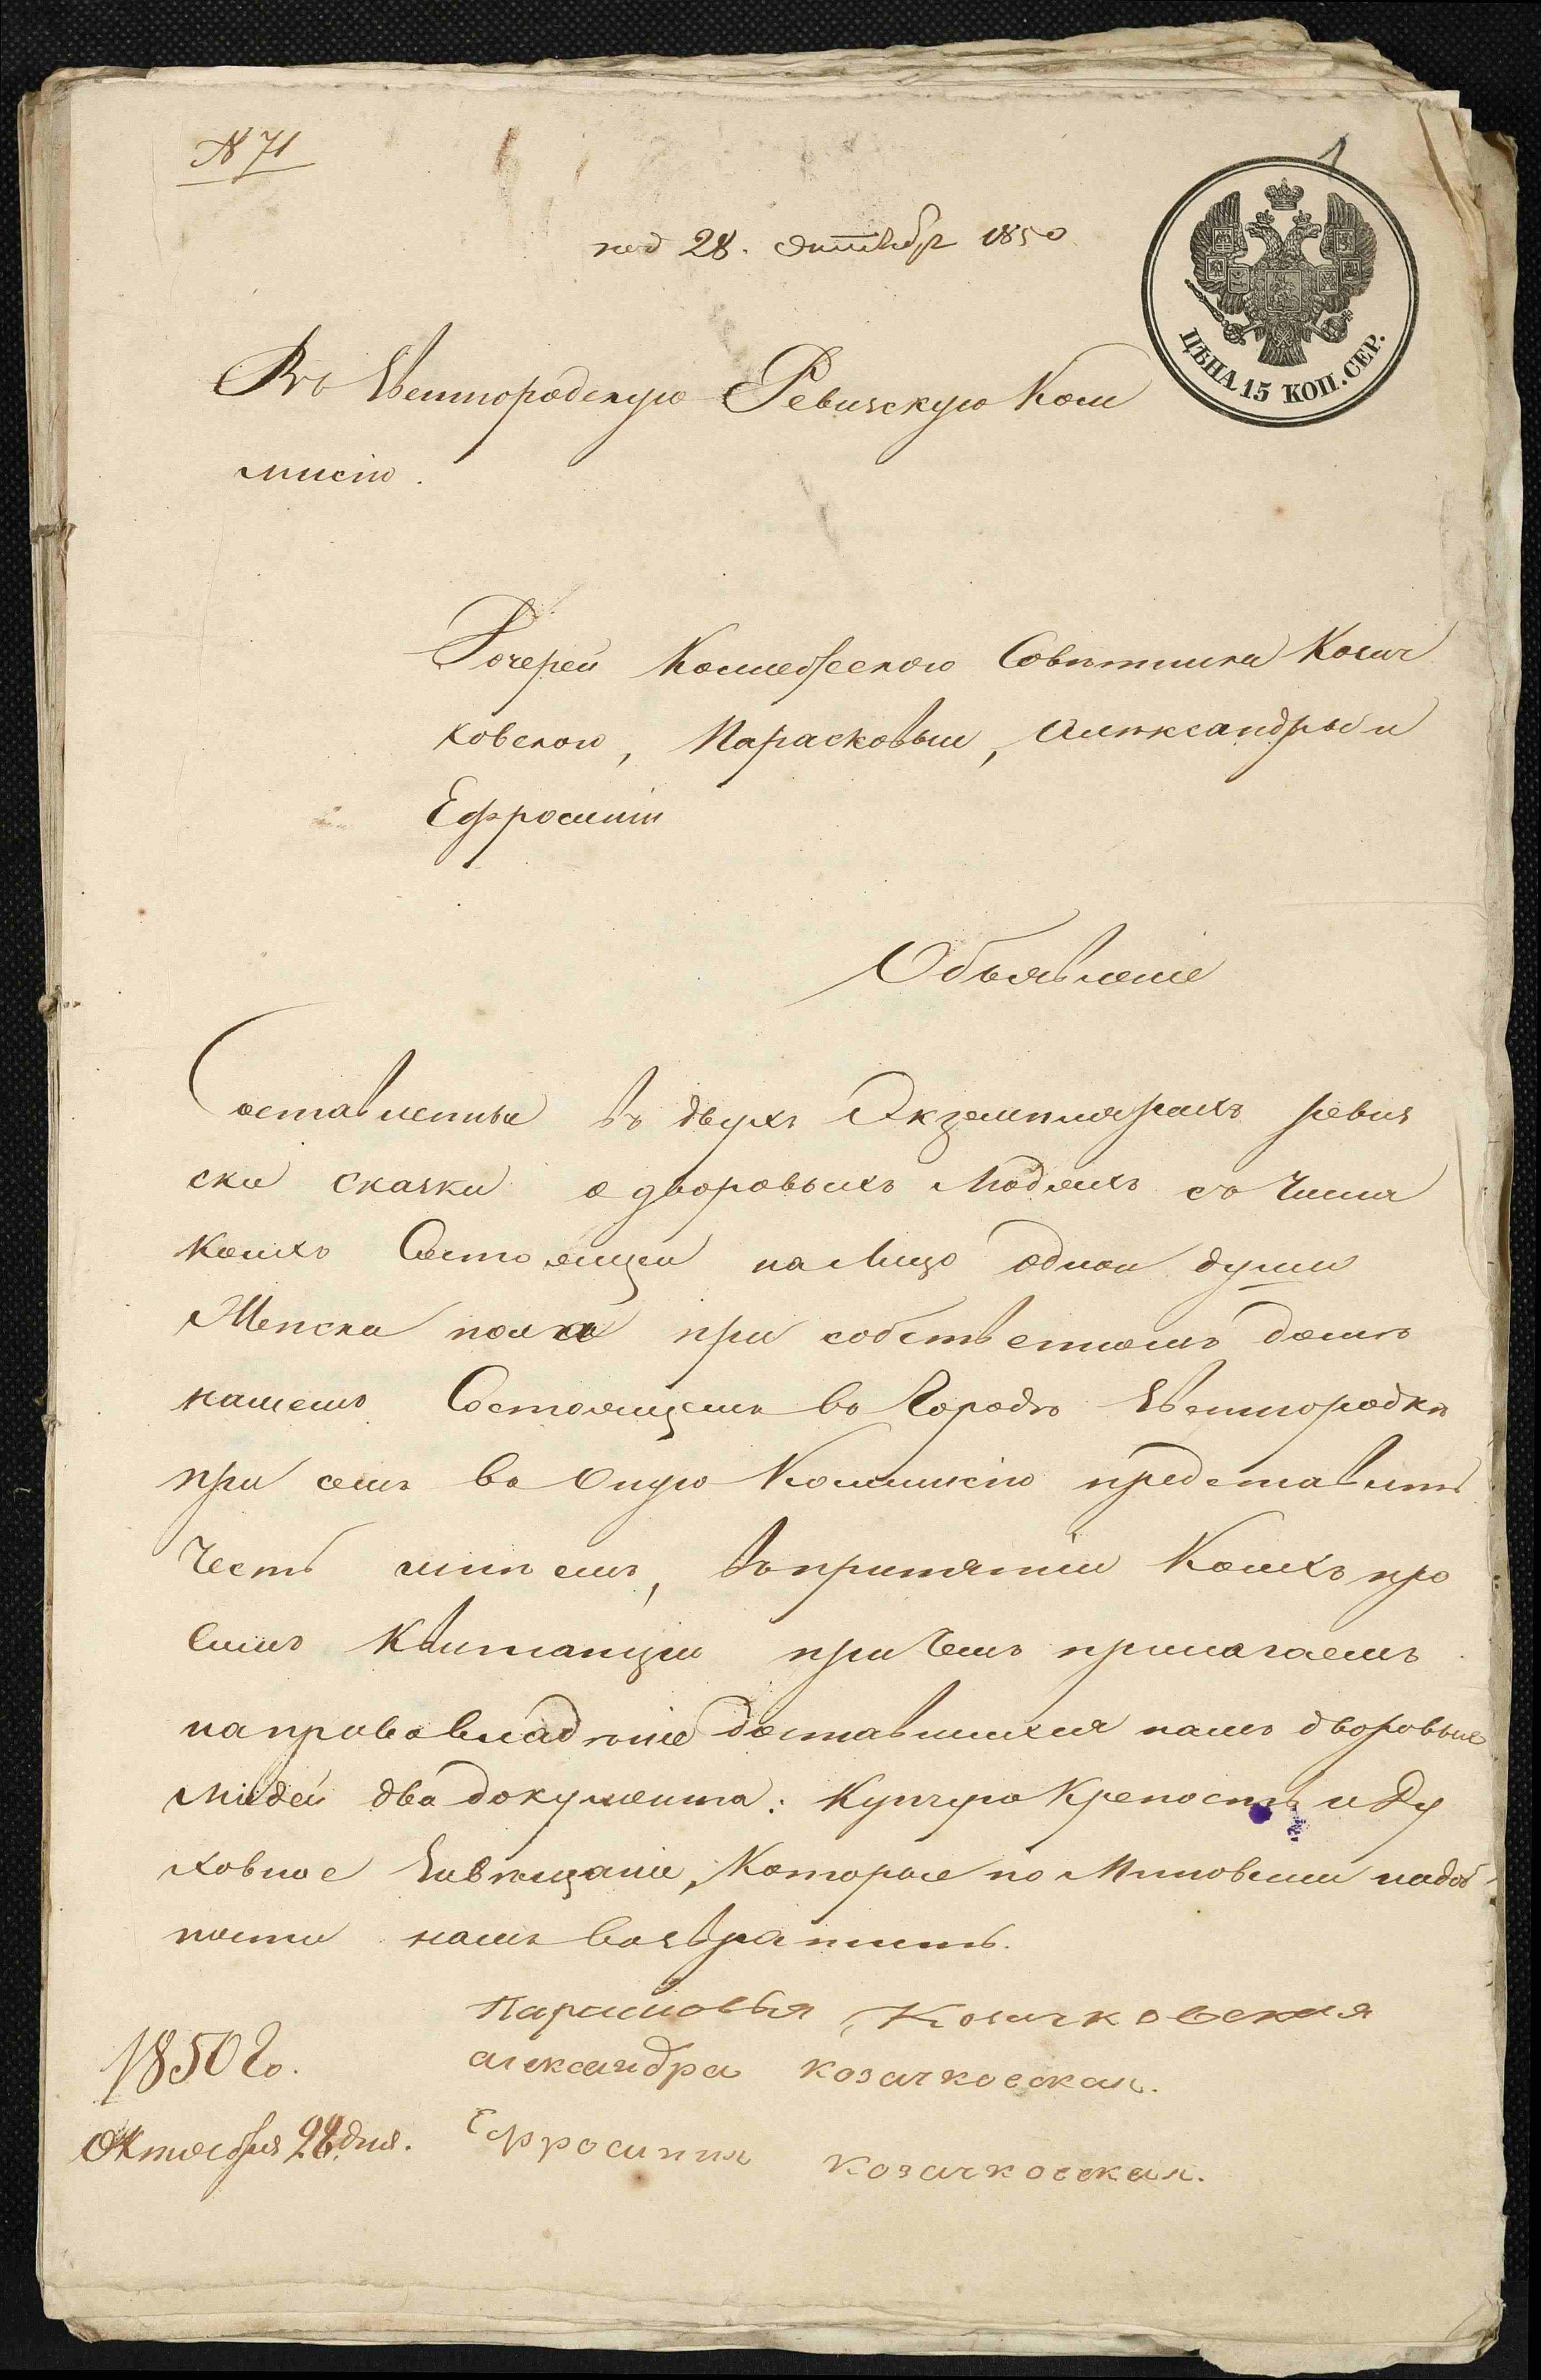 № 71
1
под 28. октябр 1850
ЦѢНА 15 КОП. СЕР.
Въ Звенигородскую Ревизскую Ком
мисію.
Дочерей Коллежского Совѣтника Козач
ковского, Парасковьи, Александры и
Ефросиніи
Объявленіе
Составленные въ двухъ Экземплярахъ ревиз
ски сказки о дворовыхъ Людяхъ съ Числа
коихъ Состоящей на Лицо одной души
Женска пола при собственномъ домѣ
нашемъ Состоящемъ въ Городѣ Звенигородкѣ
при семъ въ Оную Коммисію представить
Честь имѣемъ, въ принятіи Коихъ про
симъ Квитанціи при чемъ прилагаемъ
на право владѣніе доставшихся намъ дворовые
Людей два документа: Купчую Крепость и Ду
ховное Завѣщаніе, Которые по Миновеніи надоб
ности намъ возвратить.
Парасковья Козачковская
александра козачковская.
Ефросиния козачковская.
1850 го.
Октября 28. дня.